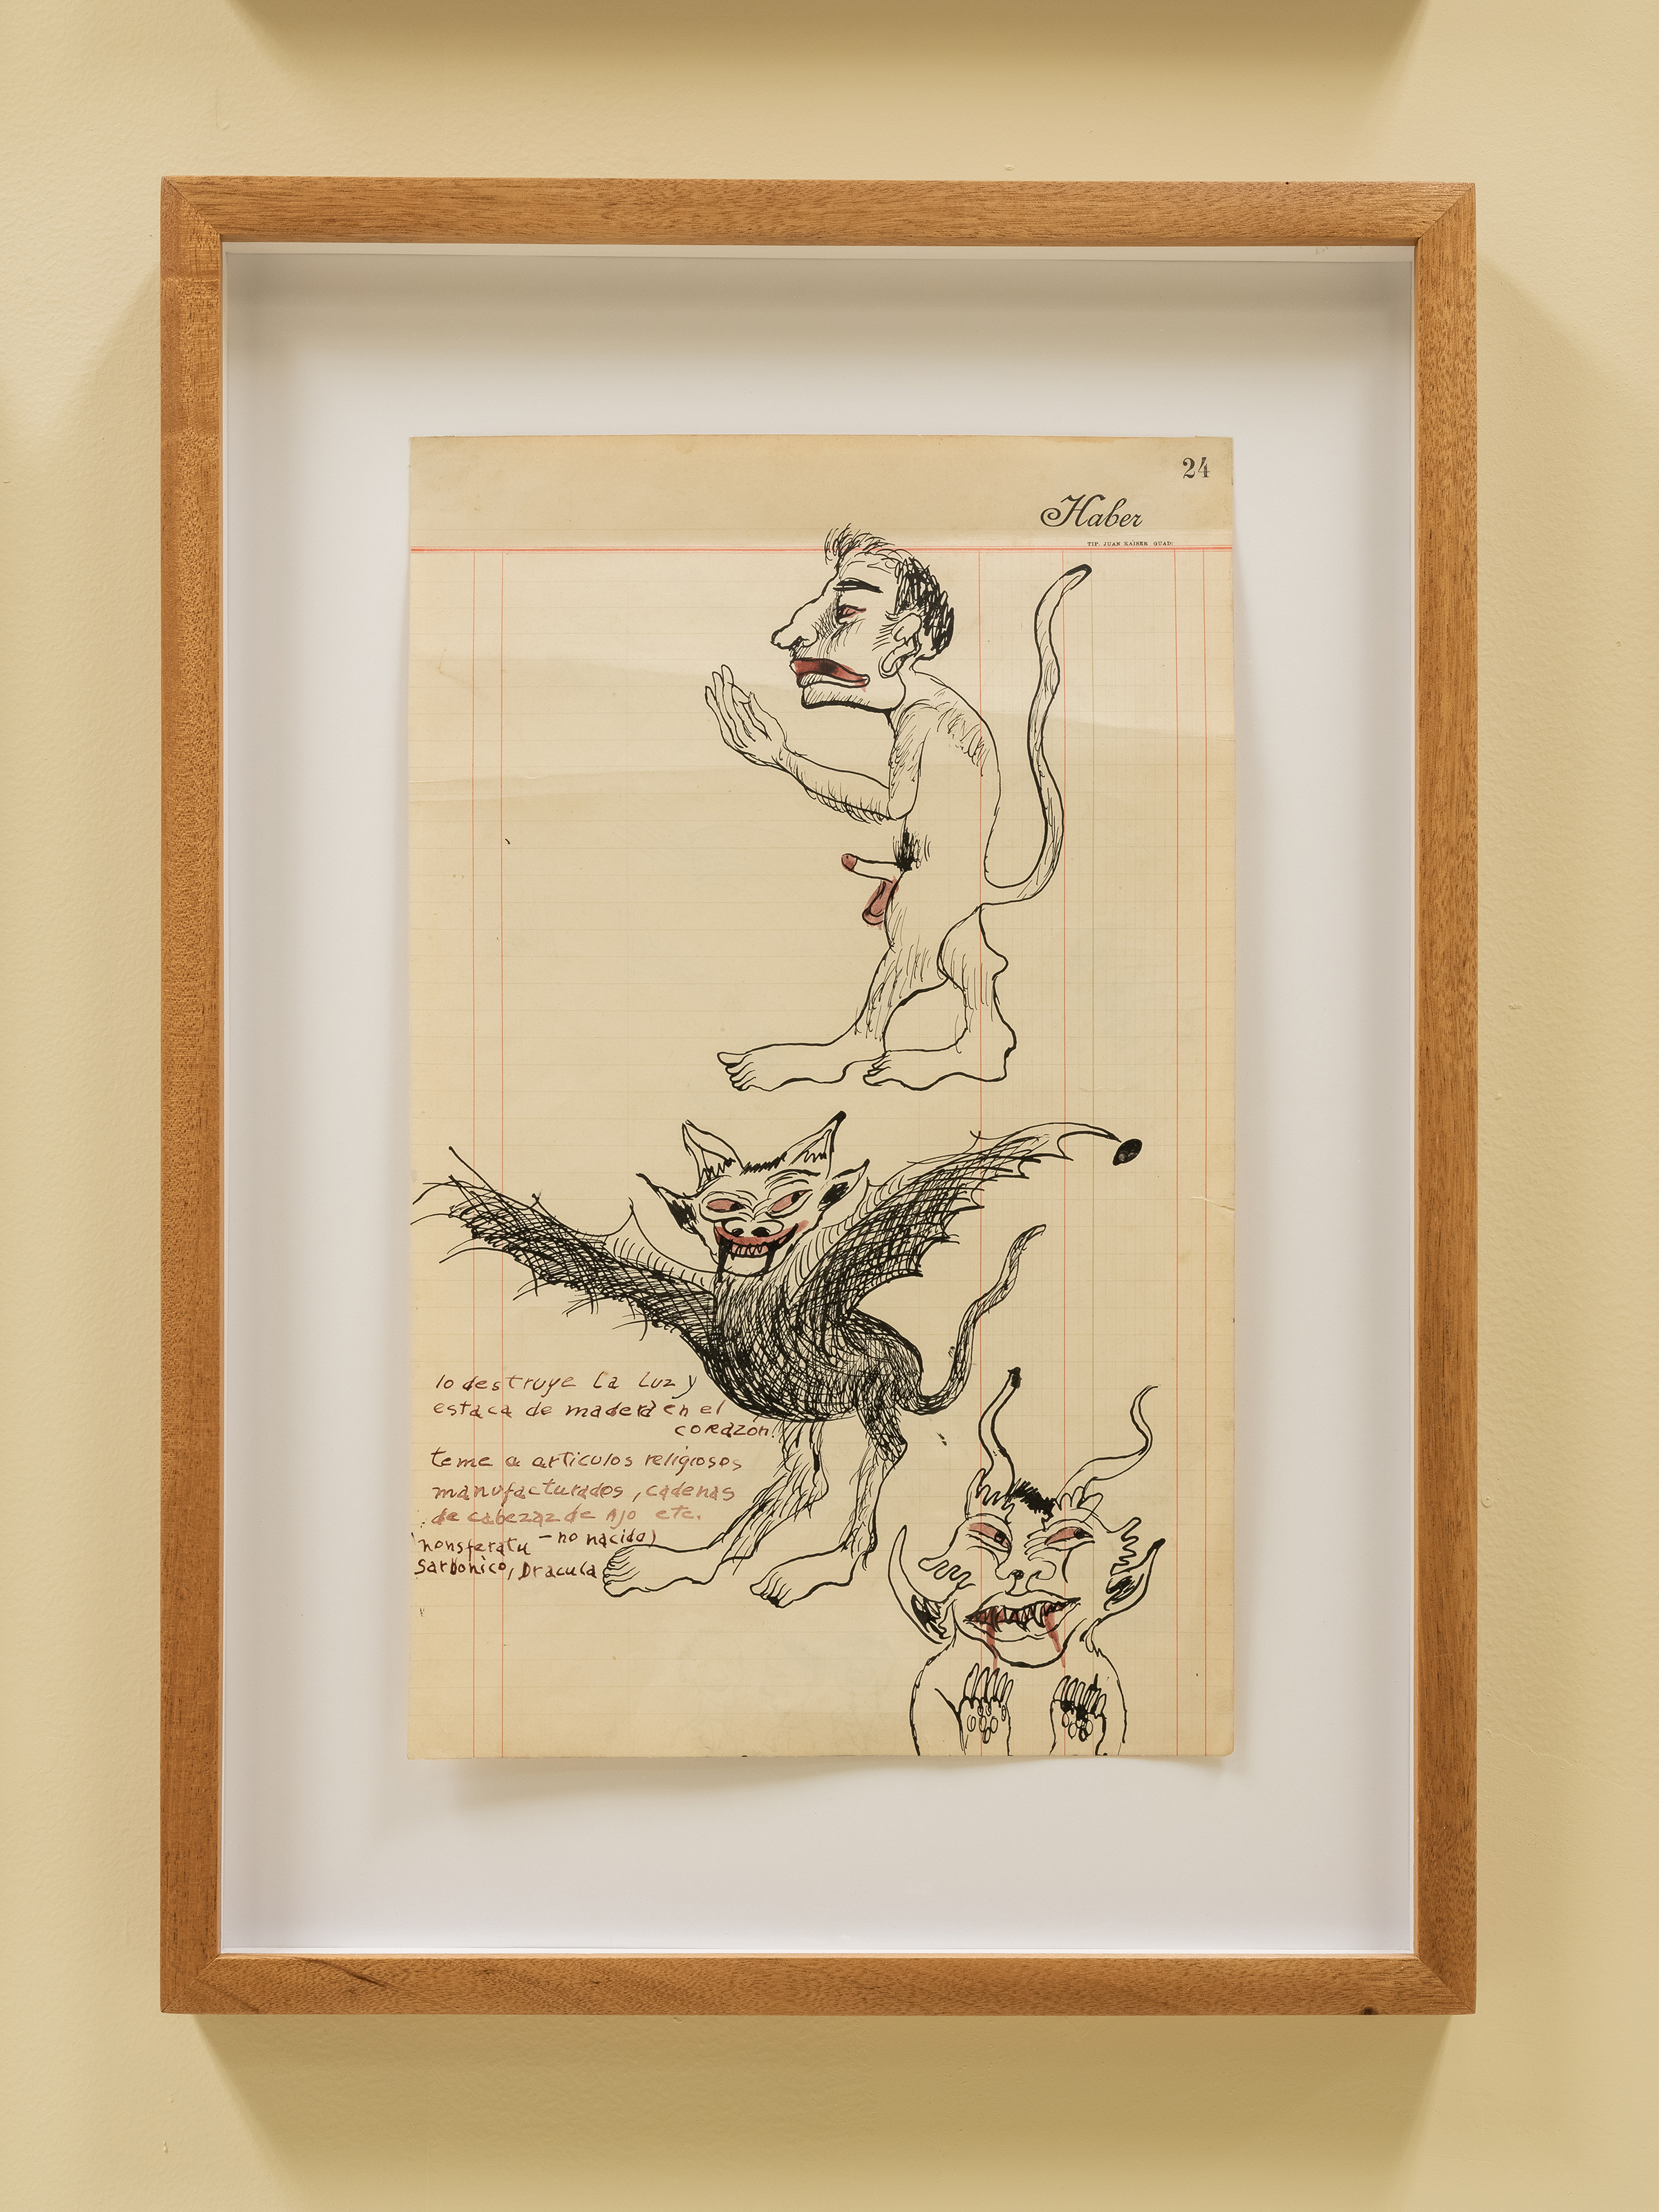 24
Haber
TIP. JUAN KAISER GUAD:
lo destruye la luz y
estaca de madera en el
corazón!
teme a articulos religiosos
manufacturados, cadenas
de cabezaz de Ajo etc.
nonsferatu - no nacido)
Sarbonico, Dracula